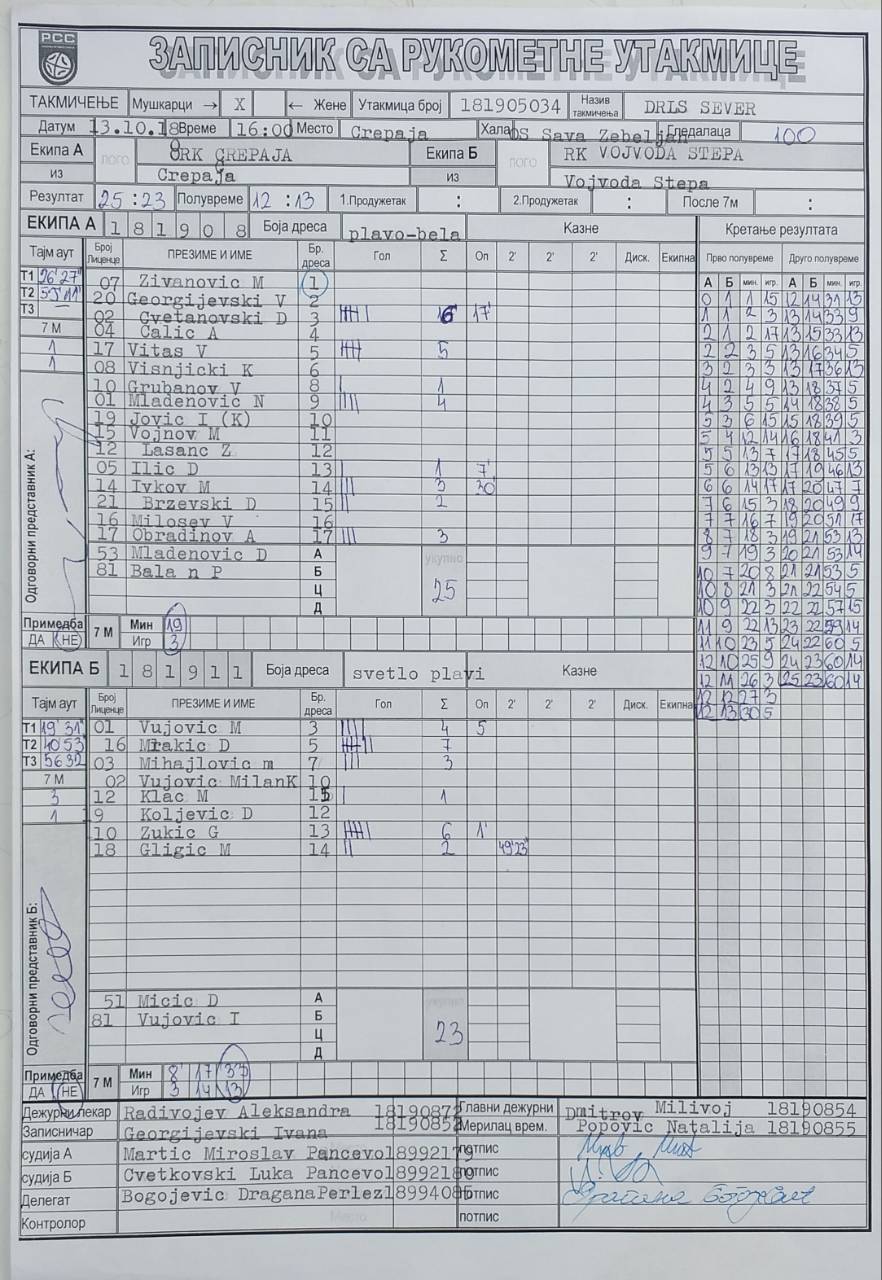 РСС
ЗАПИСНИК СА РУКОМЕТНЕ УТАКМИЦЕ
ТАКМИЧЕЊЕ Мушкарци → X ← Жене Утакмица број 181905034 Назив такмичења DRLS SEVER
Датум 13.10.18 Време 16:00 Место Crepaja Хала OS Sava Zebeljan Гледалаца 100
Екипа А ЛОГО ORK CREPAJA Екипа Б ЛОГО RK VOJVODA STEPA
из Crepaja из Vojvoda Stepa
Резултат 25:23 Полувреме 12:13 1.Продужетак : 2.Продужетак : После 7м :
ЕКИПА А 1 8 1 9 0 8 Боја дреса plavo-bela Казне Кретање резултата
Тајм аут Број Лиценце ПРЕЗИМЕ И ИМЕ Бр. дреса Гол Σ Оп 2' 2' 2' Диск. Екипна Прво полувреме Друго полувреме
А Б мин. игр. А Б мин. игр.
Т1 26'27" 07 Zivanovic M 1 0 1 1 15 12 14 31 13
Т2 53'11" 20 Georgijevski V 2 1 1 2 3 13 14 33 9
Т3 — 02 Cvetanovski D 3 6 17' 2 1 2 17 13 15 33 13
7 М 04 Calic A 4 2 2 3 5 13 16 34 5
1 17 Vitas V 5 5 3 2 3 3 13 17 36 13
1 08 Visnjicki K 6 4 2 4 9 13 18 37 5
10 Grubanov V 8 1 4 3 5 5 14 18 38 5
01 Mladenovic N 9 4 5 3 6 15 15 18 39 5
19 Jovic I (K) 10 5 4 12 14 16 18 41 3
15 Vojnov M 11 5 5 13 7 17 18 45 5
12 Lasanc Z 12 5 6 13 13 17 19 46 13
05 Ilic D 13 1 7' 6 6 14 17 17 20 47 7
14 Ivkov M 14 3 30' 7 6 15 3 18 20 49 9
21 Brzevski D 15 2 7 7 16 7 19 20 51 17
16 Milosev V 16 8 7 18 3 19 21 53 13
17 Obradinov A 17 3 9 7 19 3 20 21 53 14
53 Mladenovic D А укупно 10 7 20 8 21 21 53 5
81 Bala n P Б 25 10 8 21 3 21 22 54 5
Ц 10 9 22 3 22 22 57 15
Д 11 9 22 13 23 22 59 14
Одговорни представник А:
Примедба ДА НЕ 7 М Мин 19 11 10 23 5 24 22 60 5
Игр 3 12 10 25 9 24 23 60 14
ЕКИПА Б 1 8 1 9 1 1 Боја дреса svetlo plavi Казне 12 11 26 3 25 23 60 14
Тајм аут Број Лиценце ПРЕЗИМЕ И ИМЕ Бр. дреса Гол Σ Оп 2' 2' 2' Диск. Екипна 12 12 27 3
12 13 30 5
Т1 19'31" 01 Vujovic M 3 4 5
Т2 40 53 16 Mrakic D 5 7
Т3 56 32 03 Mihajlovic m 7 3
7 М 02 Vujovic MilanK 10
3 12 Klac M 1
1 19 Koljevic D 12
10 Zukic G 13 6 1'
18 Gligic M 14 2 49'23"
Одговорни представник Б:
51 Micic D А укупно
81 Vujovic I Б 23
Ц
Д
Примедба ДА НЕ 7 М Мин 8' 17 37
Игр 3 14 13
Дежурни лекар Radivojev Aleksandra 18190872 Главни дежурни Dmitrov Milivoj 18190854
Записничар Georgijevski Ivana 18190852 Мерилац врем. Popovic Natalija 18190855
судија А Martic Miroslav Pancevo 18992179 потпис
судија Б Cvetkovski Luka Pancevo 18992180 потпис
Делегат Bogojevic Dragana Perlez 18994086 потпис
Контролор Место потпис